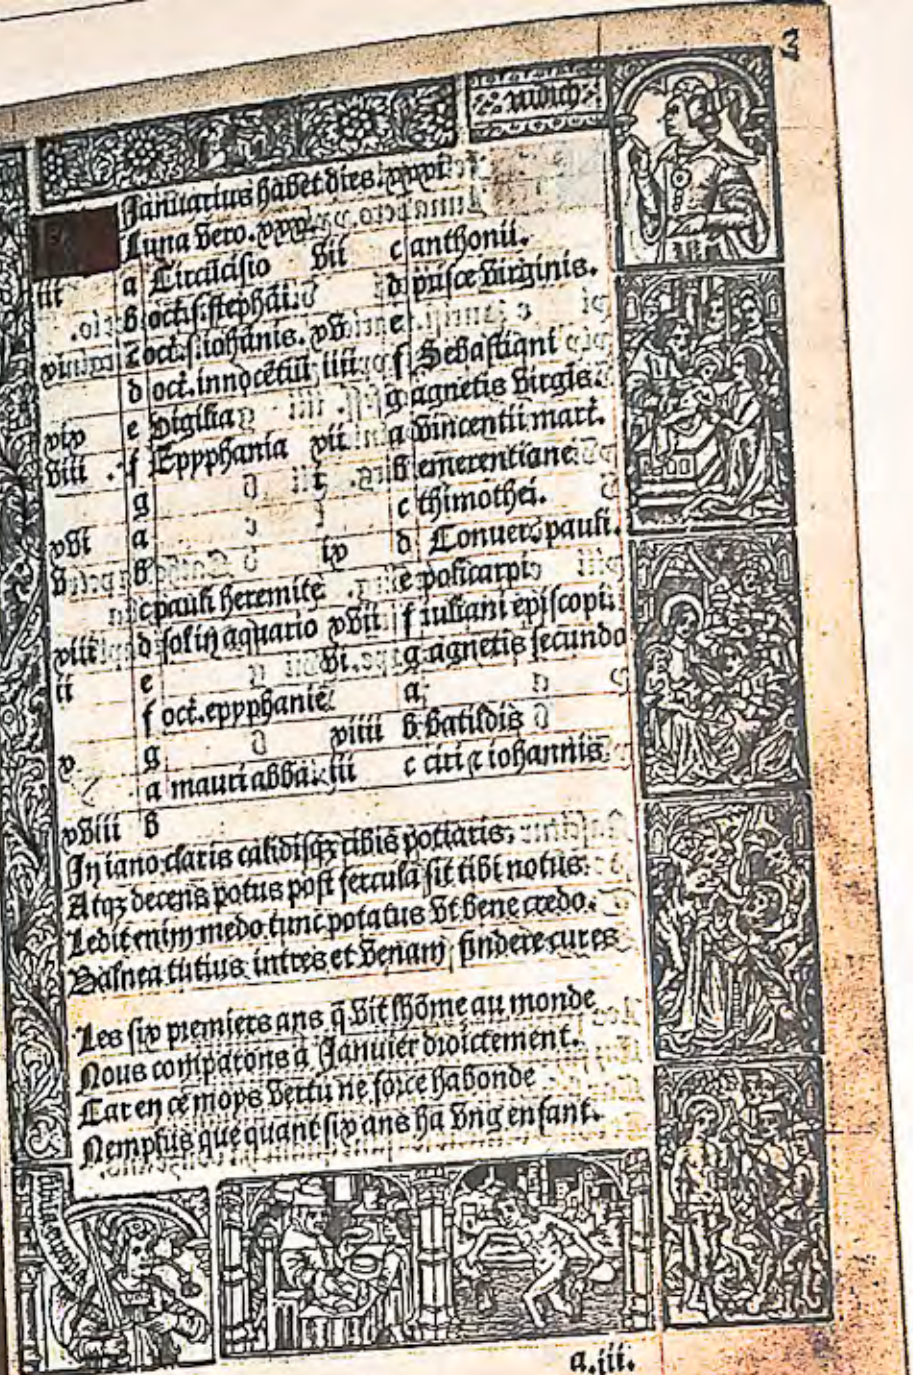 3
Januarius habet dies. xxxi
Luna vero. xxx.
iii a Circūcisio vii c anthonii.
b oct. s. stephāi. d prisce virginis.
c oct. s. iohānis. xv e
d oct. innocētiū iiii f Sebastiani
xix e vigilia g agnetis virgīs.
viii f Epyphania xii a vincentii mart.
g i b emerentiane
xvi a c thimothei.
v b ix d Conuers. pauli.
c pauli heremite e policarpi
xiii d sol in aquario xvii f iuliani episcopi
ii e vi. g agnetis secundo
f oct. epyphanie a
x g xiiii b batildis
a mauri abba. iii c ciri ⁊ iohannis
xviii b
In iano claris calidisqꝫ cibis potiaris.
Atqꝫ decens potus post fercula sit tibi notus.
Ledit enim medo tunc potatus vt bene credo.
Balnea tutius intres et venam findere cures
Les six premiers ans q̄ vit lhōme au monde
Nous comparons a Januier droictement.
Car en ce moys vertu ne force habonde
Nemplus que quant six ans ha vng enfant.
a.iii.